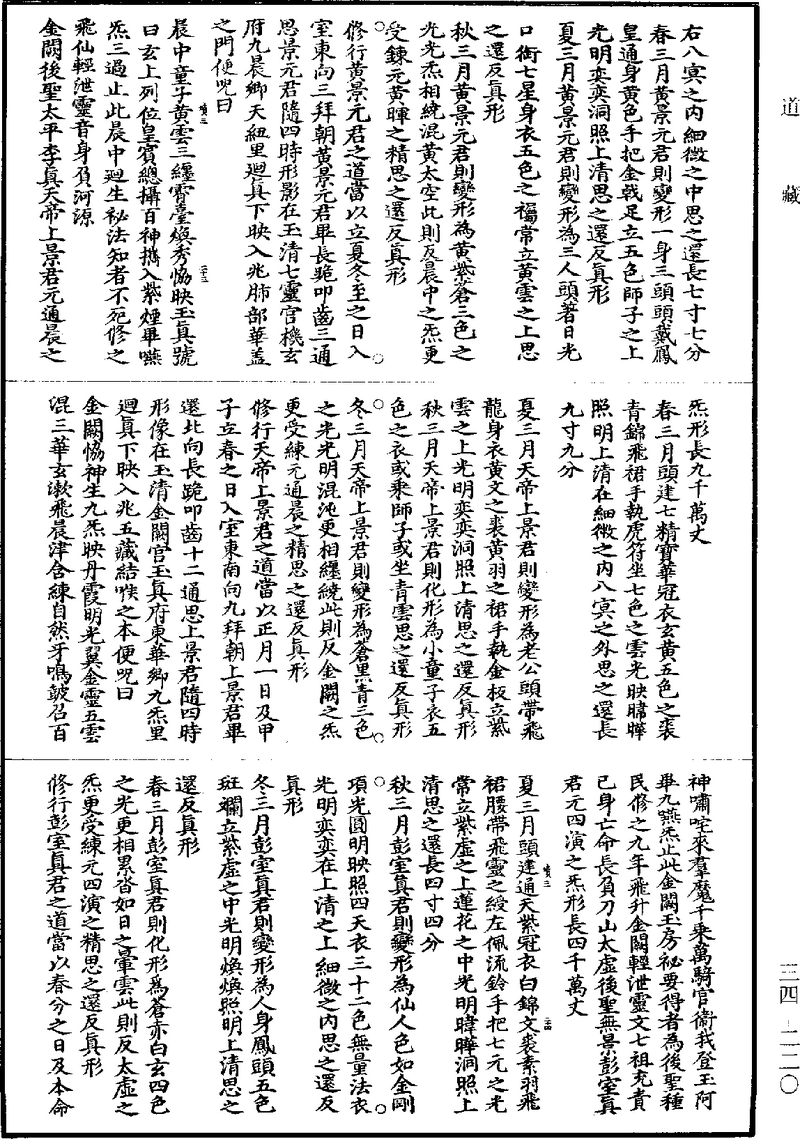 道藏
右八冥之内細微之中思之還長七寸七分
春三月黃景元君則變形一身三頭頭戴鳳
皇通身黃色手把金戟足立五色師子之上
光明奕奕洞照上清思之還反真形
夏三月黃景元君則變形為三人頭著日光
口銜七星身衣五色之襡常立黃雲之上思
之還反真形
秋三月黃景元君則變形為黃紫蒼三色之
光光炁相繞混黃太空此則反晨中之炁更
受鍊元黃暉之精思之還反真形
修行黃景元君之道當以立夏冬至之日入
室東向三拜朝黃景元君畢長跪叩齒三通
思景元君隨四時形影在玉清七靈宮機玄
府九晨鄉天紐里迴真下映入兆肺部華蓋
之門便呪曰
晨中童子黃雲三纏霄臺煥秀恊映玉真號
曰玄上列位皇賓總攝百神攜入紫煙畢嚥
炁三過止此晨中迴生秘法知者不死修之
飛仙輕泄靈音身負河源
金闕後聖太平李真天帝上景君元通晨之
炁形長九千萬丈
春三月頭建七精寶華冠衣玄黃五色之裘
青錦飛裙手執虎符坐七色之雲光映暐曄
照明上清在細微之内八冥之外思之還長
九寸九分
夏三月天帝上景君則變形為老公頭帶飛
龍身衣黃文之裘黃羽之裙手執金板立紫
雲之上光明奕奕洞照上清思之還反真形
秋三月天帝上景君則化形為小童子衣五
色之衣或乘師子或坐青雲思之還反真形
冬三月天帝上景君則變形為蒼黑青三色
之光光明混沌更相纏繞此則反金闕之炁
更受練元通晨之精思之還反真形
修行天帝上景君之道當以正月一日及甲
子立春之日入室東南向九拜朝上景君畢
還北向長跪叩齒十二通思上景君隨四時
形像在玉清金闕宮玉真府東華鄉九炁里
迴真下映入兆五藏結喉之本便呪曰
金闕恊神生九炁映丹霞明光翼金靈五雲
混三華玄漱飛晨津含練自然牙鳴鼓召百
神嘯咤來羣魔千乘萬騎官衛我登玉阿
畢九嚥炁止此金闕玉房祕要得者為後聖種
民修之九年飛升金闕輕泄靈文七祖充責
己身亡命長負刀山太虛後聖無景彭室真
君元四演之炁形長四千萬丈
夏三月頭建通天紫冠衣白錦文裘素羽飛
裙腰帶飛靈之綬左佩流鈴手把七元之光
常立紫虛之上蓮花之中光明暐曄洞照上
清思之還長四寸四分
秋三月彭室真君則變形為仙人色如金剛
項光圓明映照四天衣三十二色無量法衣
光明奕奕在上清之上細微之内思之還反
真形
冬三月彭室真君則變形為人身鳳頭五色
斑斕立紫虛之中光明煥煥照明上清思之
還反真形
春三月彭室真君則化形為蒼赤白玄四色
之光更相累沓如日之暈雲此則反太虛之
炁更受練元四演之精思之還反真形
修行彭室真君之道當以春分之日及本命
三四—二二〇